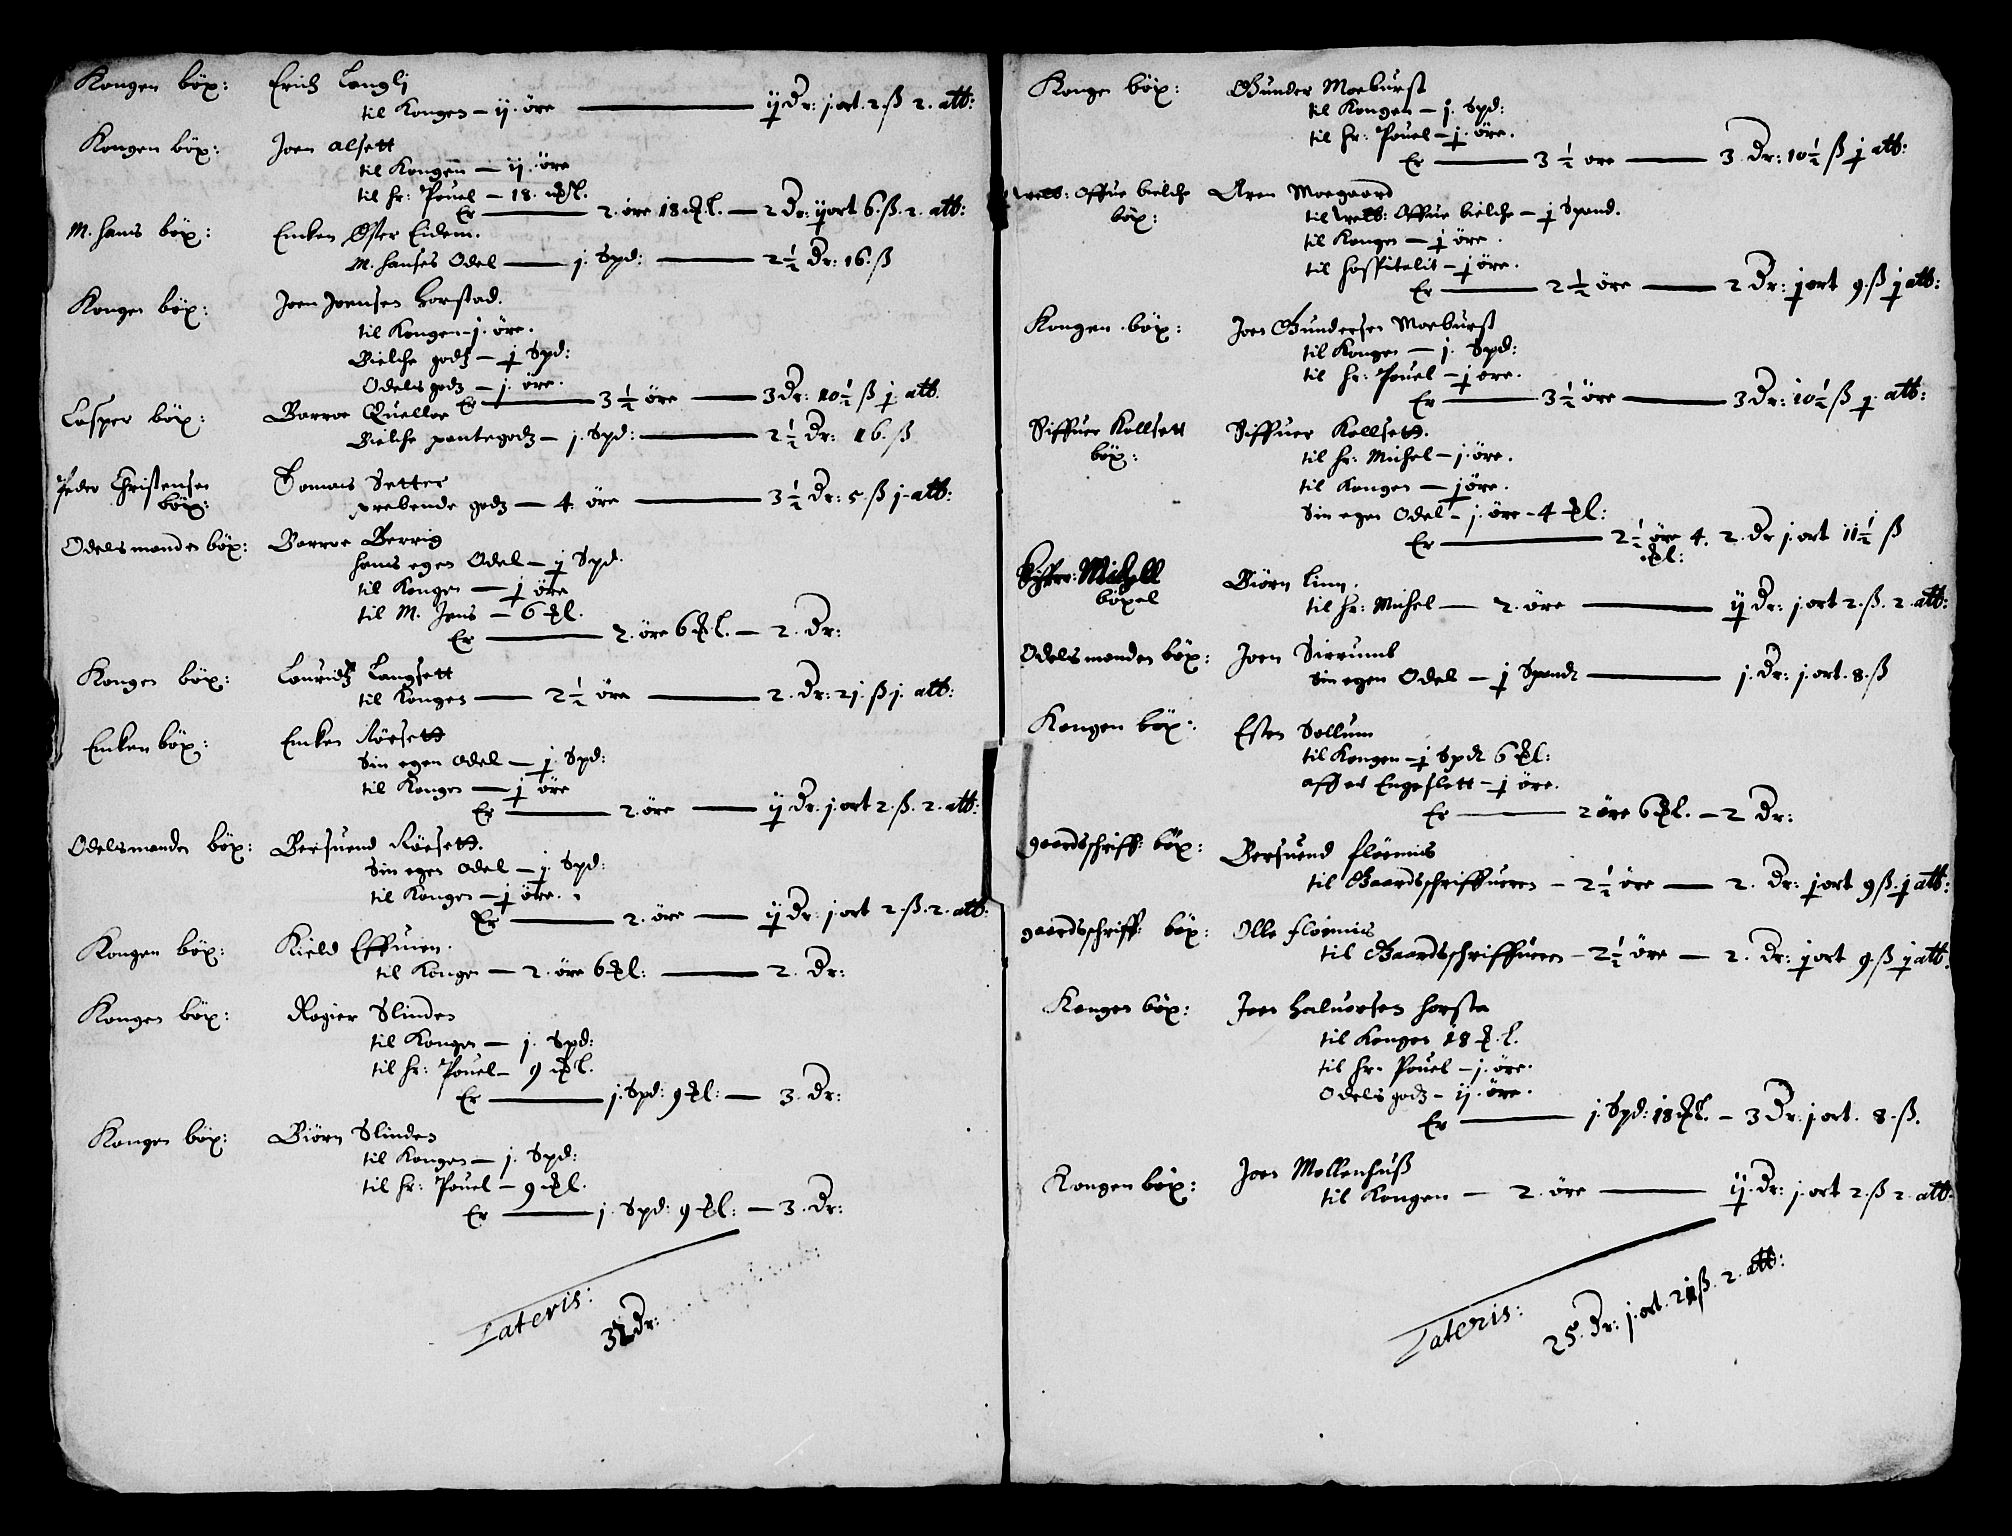 Kongen böx: Erich Langlj
til Kongen – ij. öre — ij Dr: j ort. 2. ß 2. alb:
Kongen böx: Joen alsett
til Kongen – ij. öre
til hr: Pouel – 18. [?]l.
Er — 2. öre 18 l. – 2 Dr: ij ort 6. ß. 2. alb:
M. hans böx: Emken Öster Eidem.
M. hanses Odel — j. Spd: — 2½ Dr: 16. ß
Kongen böx: Joen Joensen Horstad.
til Kongen – j. öre.
Bielche godtz – j Spd:
Odels godtz – j. öre.
Er — 3½ öre — 3 Dr: 10½ ß j. alb.
Casper böx: Barroe Quelloe
Bielche pantegodtz – j. Spd: — 2½ Dr: 16. ß
Peder Christensen Tomas Setter
böx: prebende godtz — 4. öre — 3½ Dr: 5. ß j. alb:
Odelsmanden böx: Barroe Berrig
hans egen Odel – j Spd.
til Kongen — j öre
til M. Jens – 6 l.
Er — 2. öre 6 l. – 2. Dr:
Kongen böx: Lauridtz Langsett
til Kongen — 2½ öre — 2. Dr: 21. ß j. alb:
Emken böx: Emken Röesett
Sin egen Odel — j. Spd:
til Kongen — j öre
Er — 2. öre — ij Dr. j ort 2. ß. 2. alb:
Odelsmanden böx: Bersuend Röesett.
Sin egen Odel – j. Spd:
til Kongen – j öre.
Er — 2. öre — ij Dr: j ort 2. ß. 2. alb:
Kongen böx: Kield Effuien.
til Kongen – 2. öre 6 l: — 2. Dr:
Kongen böx: Rogier Slinden
til Kongen – j. Spd:
til hr: Pouel – 9 l.
Er — j. Spd: 9 l: — 3. Dr:
Kongen böx: Biörn Slinden
til Kongen – j. Spd:
til hr: Pouel – 9 l.
Er — j. Spd: 9 l: — 3. Dr:
Lateris:
32 Dr:
Kongen böx: Gunder Moeburst
til Kongen – j. Spd:
til hr: Pouel – j. öre.
Er — 3½ öre — 3. Dr: 10½ ß j alb:
Welb: Offue bielche Aren Moegaard
böx: til Welb: Offue bielche – j Spand.
til Kongen – j öre.
til hospitalit – j öre.
Er — 2½ öre — 2 Dr: j ort 9. ß j alb:
Kongen böx: Joen Gundersen Moeburst
til Kongen – j. Spd:
til hr: Pouel – j öre.
Er — 3½ öre — 3 Dr: 10½ ß j. alb:
Siffuer Kollsett Siffuer Kollsett.
böx: til hr: Michel – j. öre.
til Kongen – j öre.
Sin egen Odel – j. öre – 4 l:
Er — 2½ öre 4. 2. Dr j. ort 11½ ß
l:
Michell Biörn Linn.
böxel til hr: Michel — 2. öre — ij Dr: j. ort 2. ß. 2. alb:
Odelsmanden böx: Joen Sirrumb
Sin egen Odel – j Spandt — j. Dr: j. ort. 8. ß
Kongen böx: Esten Sollum
til Kongen – j Spd 6 l:
aff et Engeslett – j öre.
Er — 2 öre 6 l. – 2 Dr:
gaardsschriff: böx: Bersuend flöennis
til Gaardsschriffueren – 2½ öre — 2. Dr: j ort 9 ß. j alb:
gaardsschriff: böx: Olle flöennis
til Gaardsschriffueren – 2½ öre – 2. Dr: j ort 9. ß j alb.
Kongen böx: Joen Haluorsen horsta
til Kongen 18 l.
til hr. Pouel – j. öre.
Odels godtz – ij. öre.
Er — j. Spd: 18 l. – 3 Dr: j ort. 8. ß.
Kongen böx: Joen Mollenhuß
til Kongen — 2. öre — ij. Dr: j. ort 2. ß 2. alb:
Lateris:
25. Dr: j. ort. 21 ß. 2. alb: